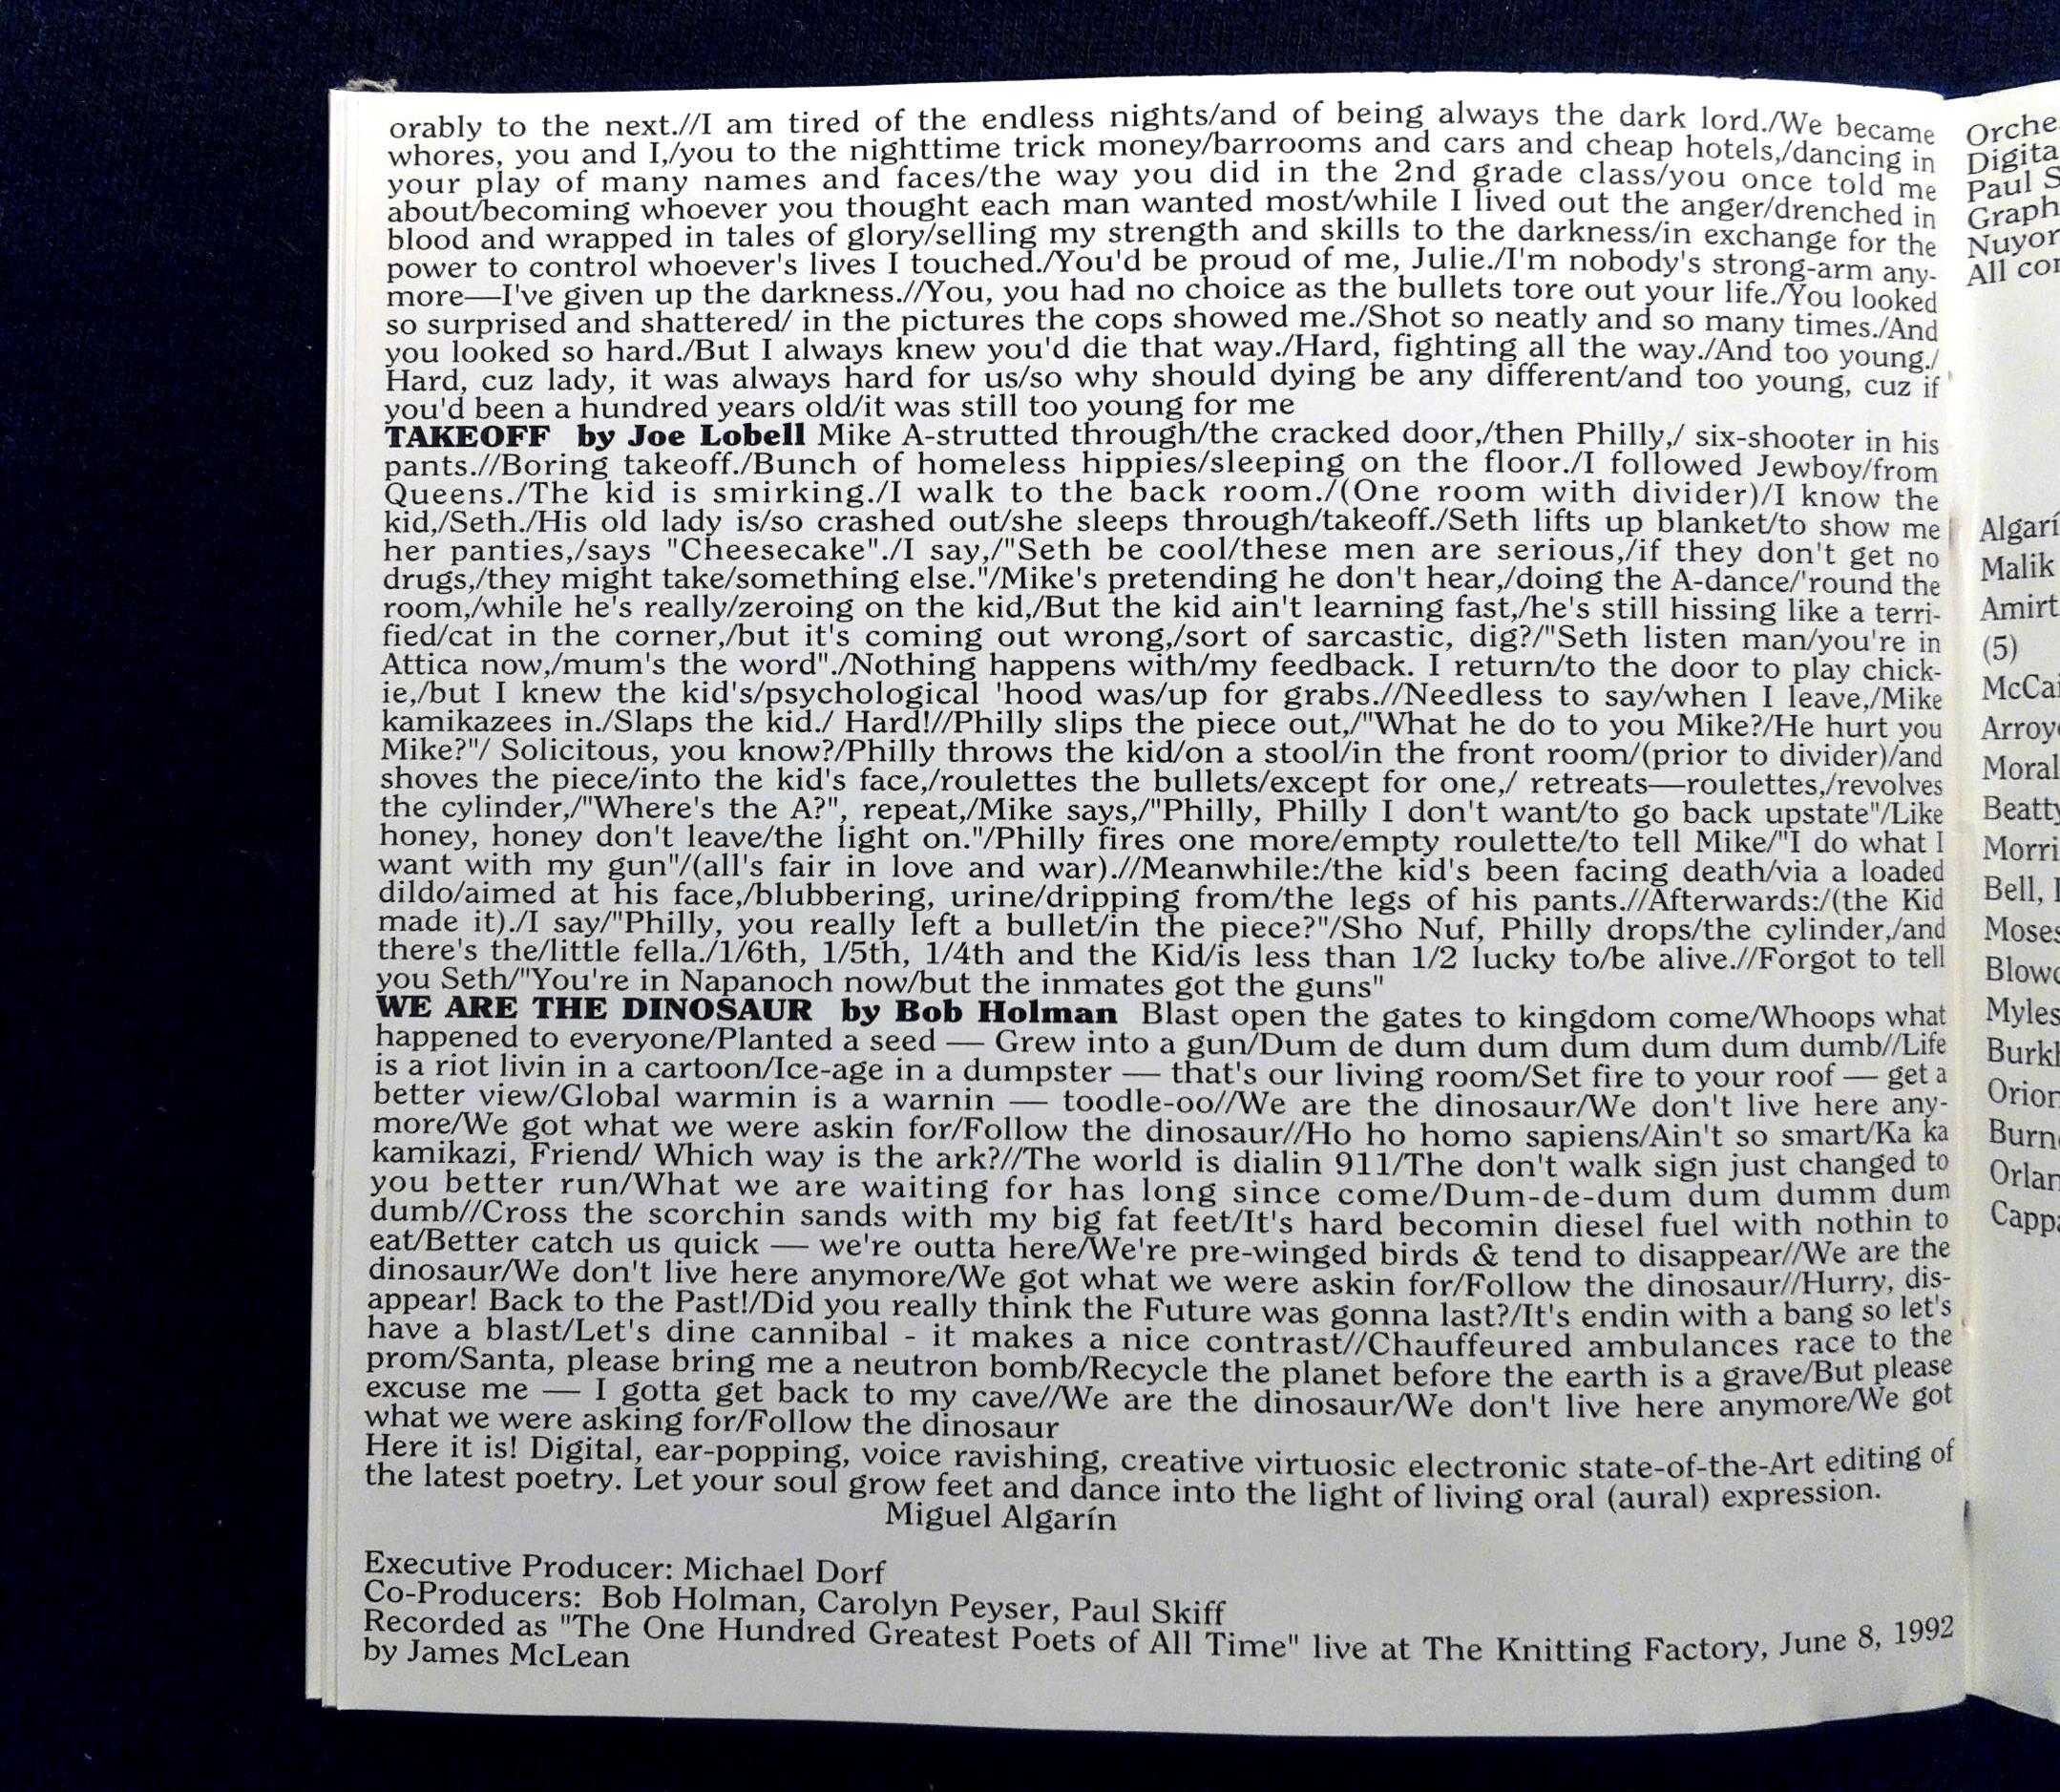 orably to the next.//I am tired of the endless nights/and of being always the dark lord./We became
whores, you and I,/you to the nighttime trick money/barrooms and cars and cheap hotels,/dancing in
your play of many names and faces/the way you did in the 2nd grade class/you once told me
about/becoming whoever you thought each man wanted most/while I lived out the anger/drenched in
blood and wrapped in tales of glory/selling my strength and skills to the darkness/in exchange for the
power to control whoever's lives I touched./You'd be proud of me, Julie./I'm nobody's strong-arm any-
more—I've given up the darkness.//You, you had no choice as the bullets tore out your life./You looked
so surprised and shattered/ in the pictures the cops showed me./Shot so neatly and so many times./And
you looked so hard./But I always knew you'd die that way./Hard, fighting all the way./And too young./
Hard, cuz lady, it was always hard for us/so why should dying be any different/and too young, cuz if
you'd been a hundred years old/it was still too young for me
TAKEOFF by Joe Lobell Mike A-strutted through/the cracked door,/then Philly,/ six-shooter in his
pants.//Boring takeoff./Bunch of homeless hippies/sleeping on the floor./I followed Jewboy/from
Queens./The kid is smirking./I walk to the back room./(One room with divider)/I know the
kid,/Seth./His old lady is/so crashed out/she sleeps through/takeoff./Seth lifts up blanket/to show me
her panties,/says "Cheesecake"./I say,/"Seth be cool/these men are serious,/if they don't get no
drugs,/they might take/something else."/Mike's pretending he don't hear,/doing the A-dance/'round the
room,/while he's really/zeroing on the kid,/But the kid ain't learning fast,/he's still hissing like a terri-
fied/cat in the corner,/but it's coming out wrong,/sort of sarcastic, dig?/"Seth listen man/you're in
Attica now,/mum's the word"./Nothing happens with/my feedback. I return/to the door to play chick-
ie,/but I knew the kid's/psychological 'hood was/up for grabs.//Needless to say/when I leave,/Mike
kamikazees in./Slaps the kid./ Hard!//Philly slips the piece out,/"What he do to you Mike?/He hurt you
Mike?"/ Solicitous, you know?/Philly throws the kid/on a stool/in the front room/(prior to divider)/and
shoves the piece/into the kid's face,/roulettes the bullets/except for one,/ retreats—roulettes,/revolves
the cylinder,/"Where's the A?", repeat,/Mike says,/"Philly, Philly I don't want/to go back upstate"/Like
honey, honey don't leave/the light on."/Philly fires one more/empty roulette/to tell Mike/"I do what I
want with my gun"/(all's fair in love and war).//Meanwhile:/the kid's been facing death/via a loaded
dildo/aimed at his face,/blubbering, urine/dripping from/the legs of his pants.//Afterwards:/(the Kid
made it)./I say/"Philly, you really left a bullet/in the piece?"/Sho Nuf, Philly drops/the cylinder,/and
there's the/little fella./1/6th, 1/5th, 1/4th and the Kid/is less than 1/2 lucky to/be alive.//Forgot to tell
you Seth/"You're in Napanoch now/but the inmates got the guns"
WE ARE THE DINOSAUR by Bob Holman Blast open the gates to kingdom come/Whoops what
happened to everyone/Planted a seed — Grew into a gun/Dum de dum dum dum dum dum dumb//Life
is a riot livin in a cartoon/Ice-age in a dumpster — that's our living room/Set fire to your roof — get a
better view/Global warmin is a warnin — toodle-oo//We are the dinosaur/We don't live here any-
more/We got what we were askin for/Follow the dinosaur//Ho ho homo sapiens/Ain't so smart/Ka ka
kamikazi, Friend/ Which way is the ark?//The world is dialin 911/The don't walk sign just changed to
you better run/What we are waiting for has long since come/Dum-de-dum dum dumm dum
dumb//Cross the scorchin sands with my big fat feet/It's hard becomin diesel fuel with nothin to
eat/Better catch us quick — we're outta here/We're pre-winged birds & tend to disappear//We are the
dinosaur/We don't live here anymore/We got what we were askin for/Follow the dinosaur//Hurry, dis-
appear! Back to the Past!/Did you really think the Future was gonna last?/It's endin with a bang so let's
have a blast/Let's dine cannibal - it makes a nice contrast//Chauffeured ambulances race to the
prom/Santa, please bring me a neutron bomb/Recycle the planet before the earth is a grave/But please
excuse me — I gotta get back to my cave//We are the dinosaur/We don't live here anymore/We got
what we were asking for/Follow the dinosaur
Here it is! Digital, ear-popping, voice ravishing, creative virtuosic electronic state-of-the-Art editing of
the latest poetry. Let your soul grow feet and dance into the light of living oral (aural) expression.
Miguel Algarín
Executive Producer: Michael Dorf
Co-Producers: Bob Holman, Carolyn Peyser, Paul Skiff
Recorded as "The One Hundred Greatest Poets of All Time" live at The Knitting Factory, June 8, 1992
by James McLean
Orche
Digita
Paul S
Graph
Nuyor
All con
Algarí
Malik
Amirt
(5)
McCai
Arroy
Moral
Beatty
Morri
Bell,
Moses
Blow
Myles
Burk
Orion
Burn
Orlan
Capp